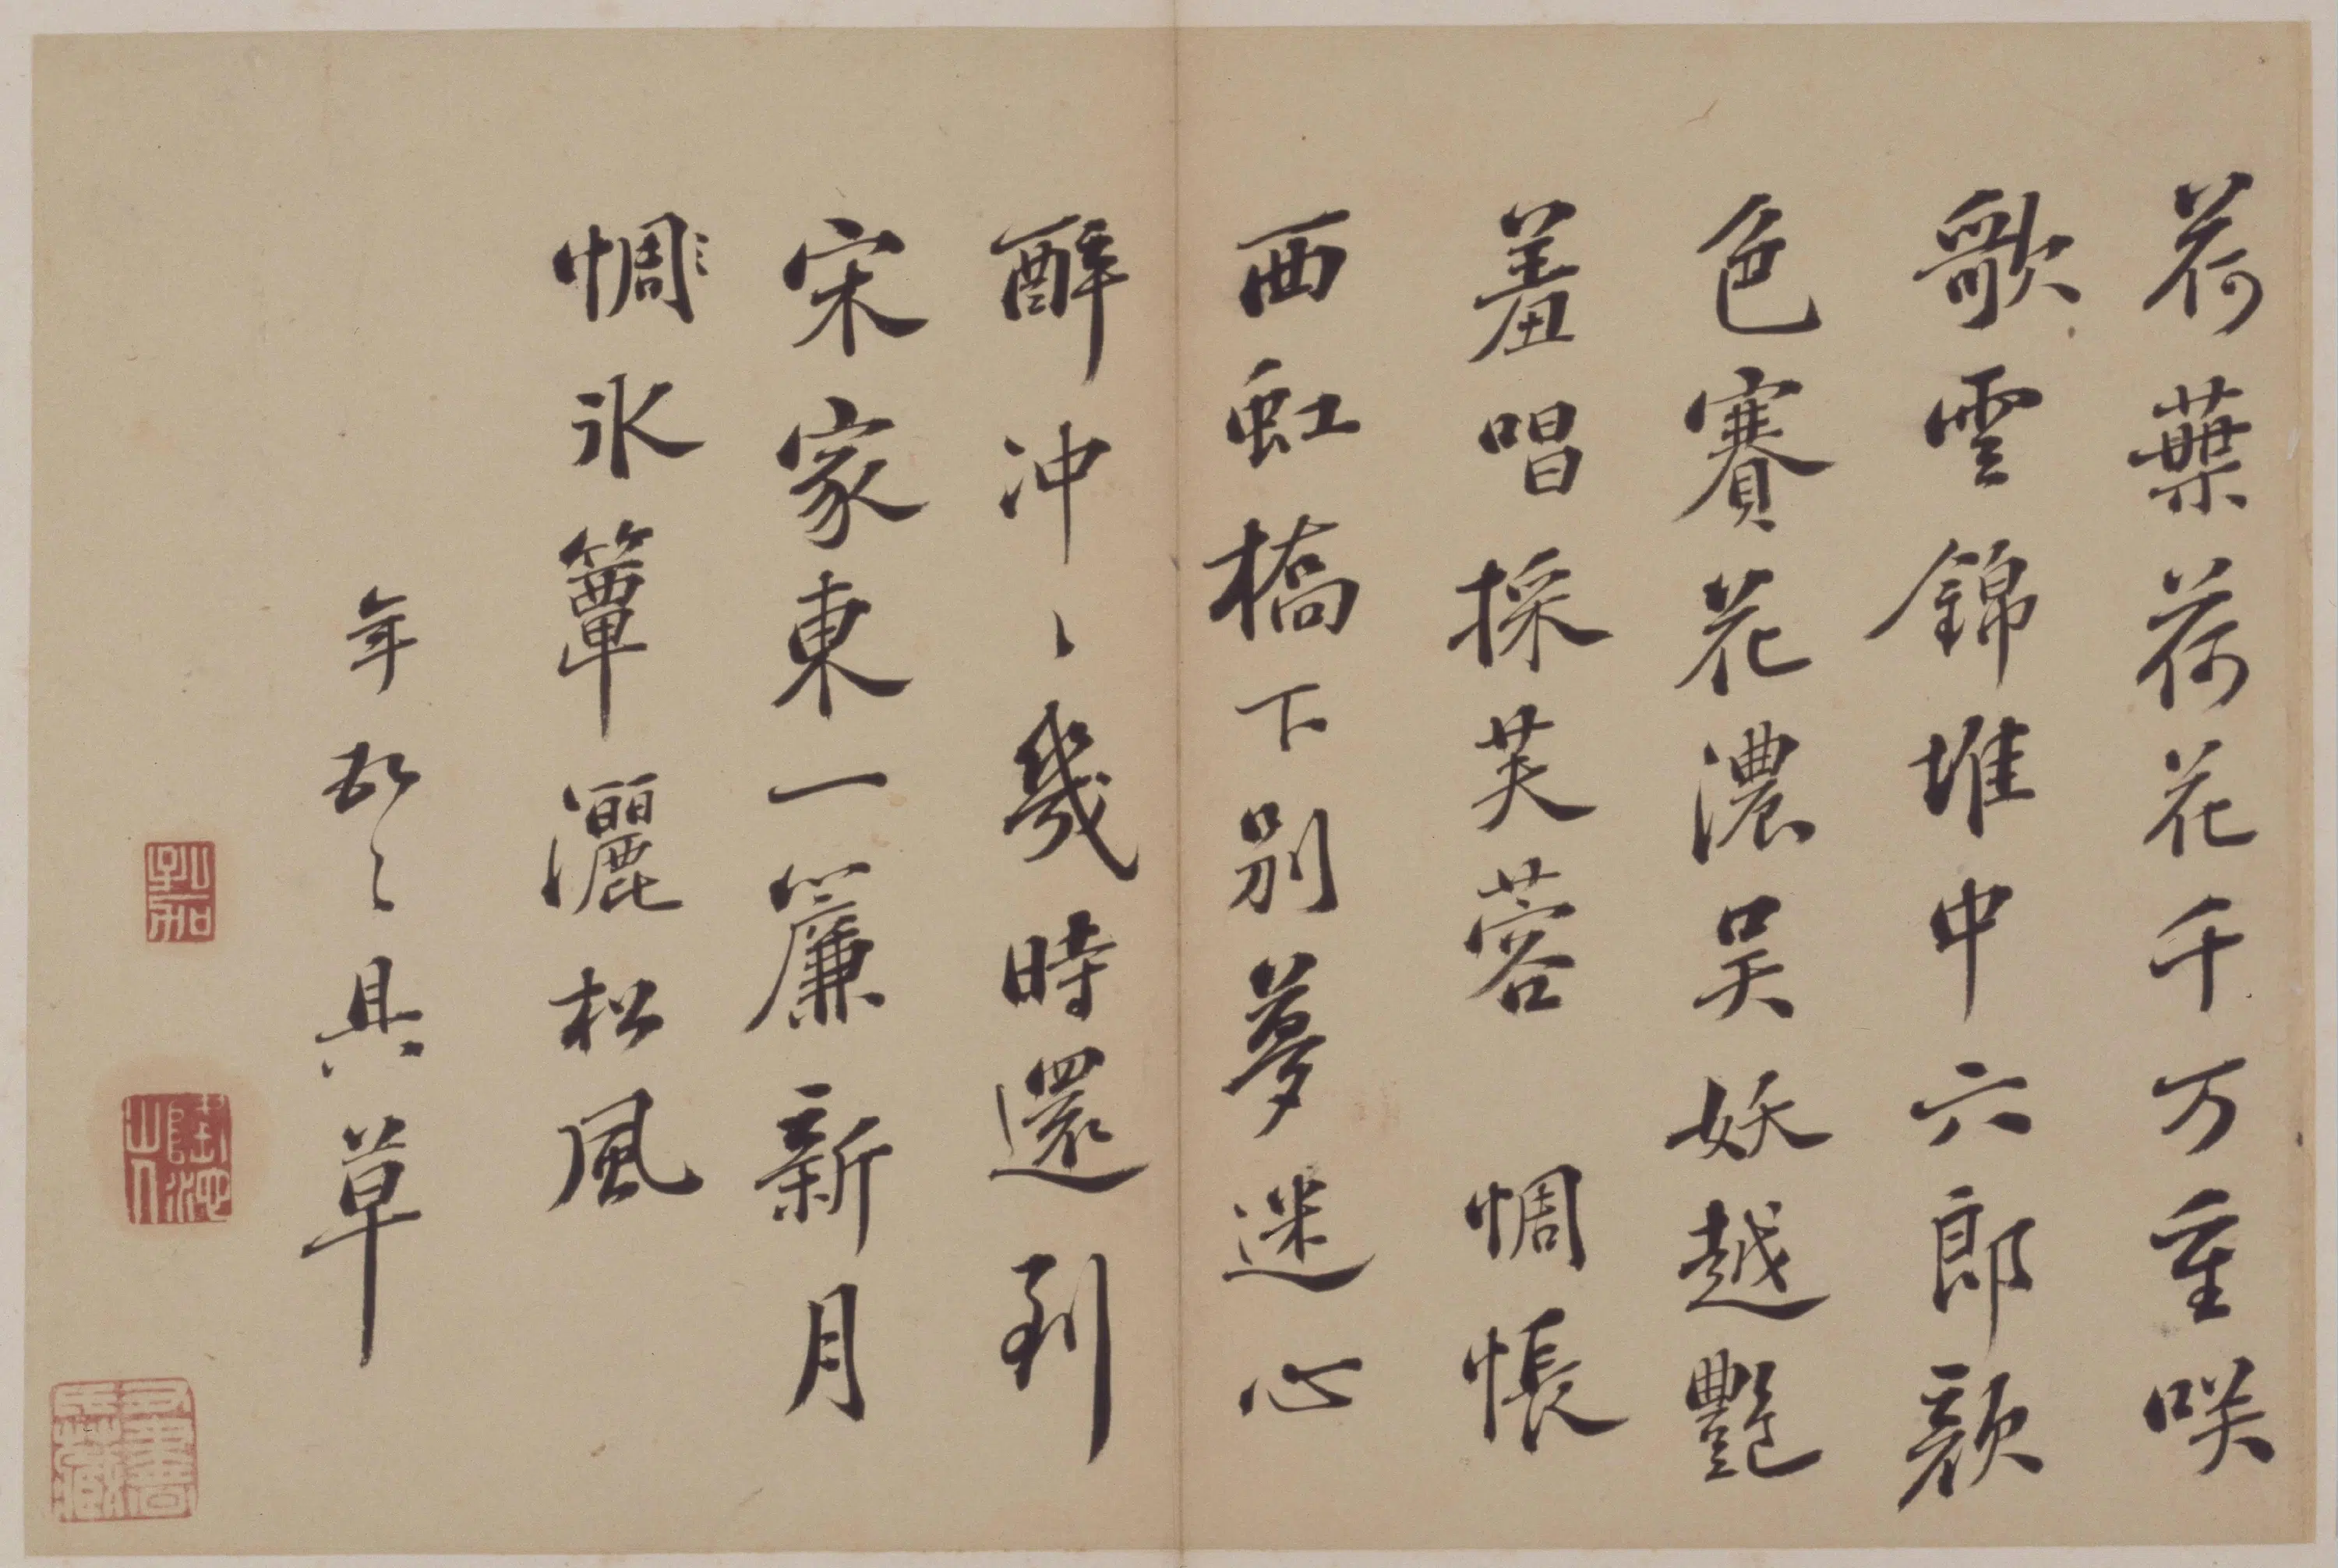 荷葉荷花千万重咲
歌雲錦堆中六郎顏
色賽花濃吳妖越艷
羞唱採芙蓉 惆悵
西虹橋下別夢迷心
醉冲〻幾時還到
宋家東一簾新月
惆氷簟灑松風
年 具草
孔加
隆池山人